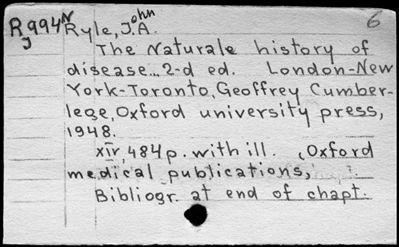 R 994 N Ryle, John A. 6
J
The Naturale history of
disease... 2-d ed. London-New
York-Toronto, Geoffrey Cumber-
lege, Oxford university press,
1948.
XIV, 484 p. with ill. (Oxford
medical publications,
Bibliogr. at end of chapt.